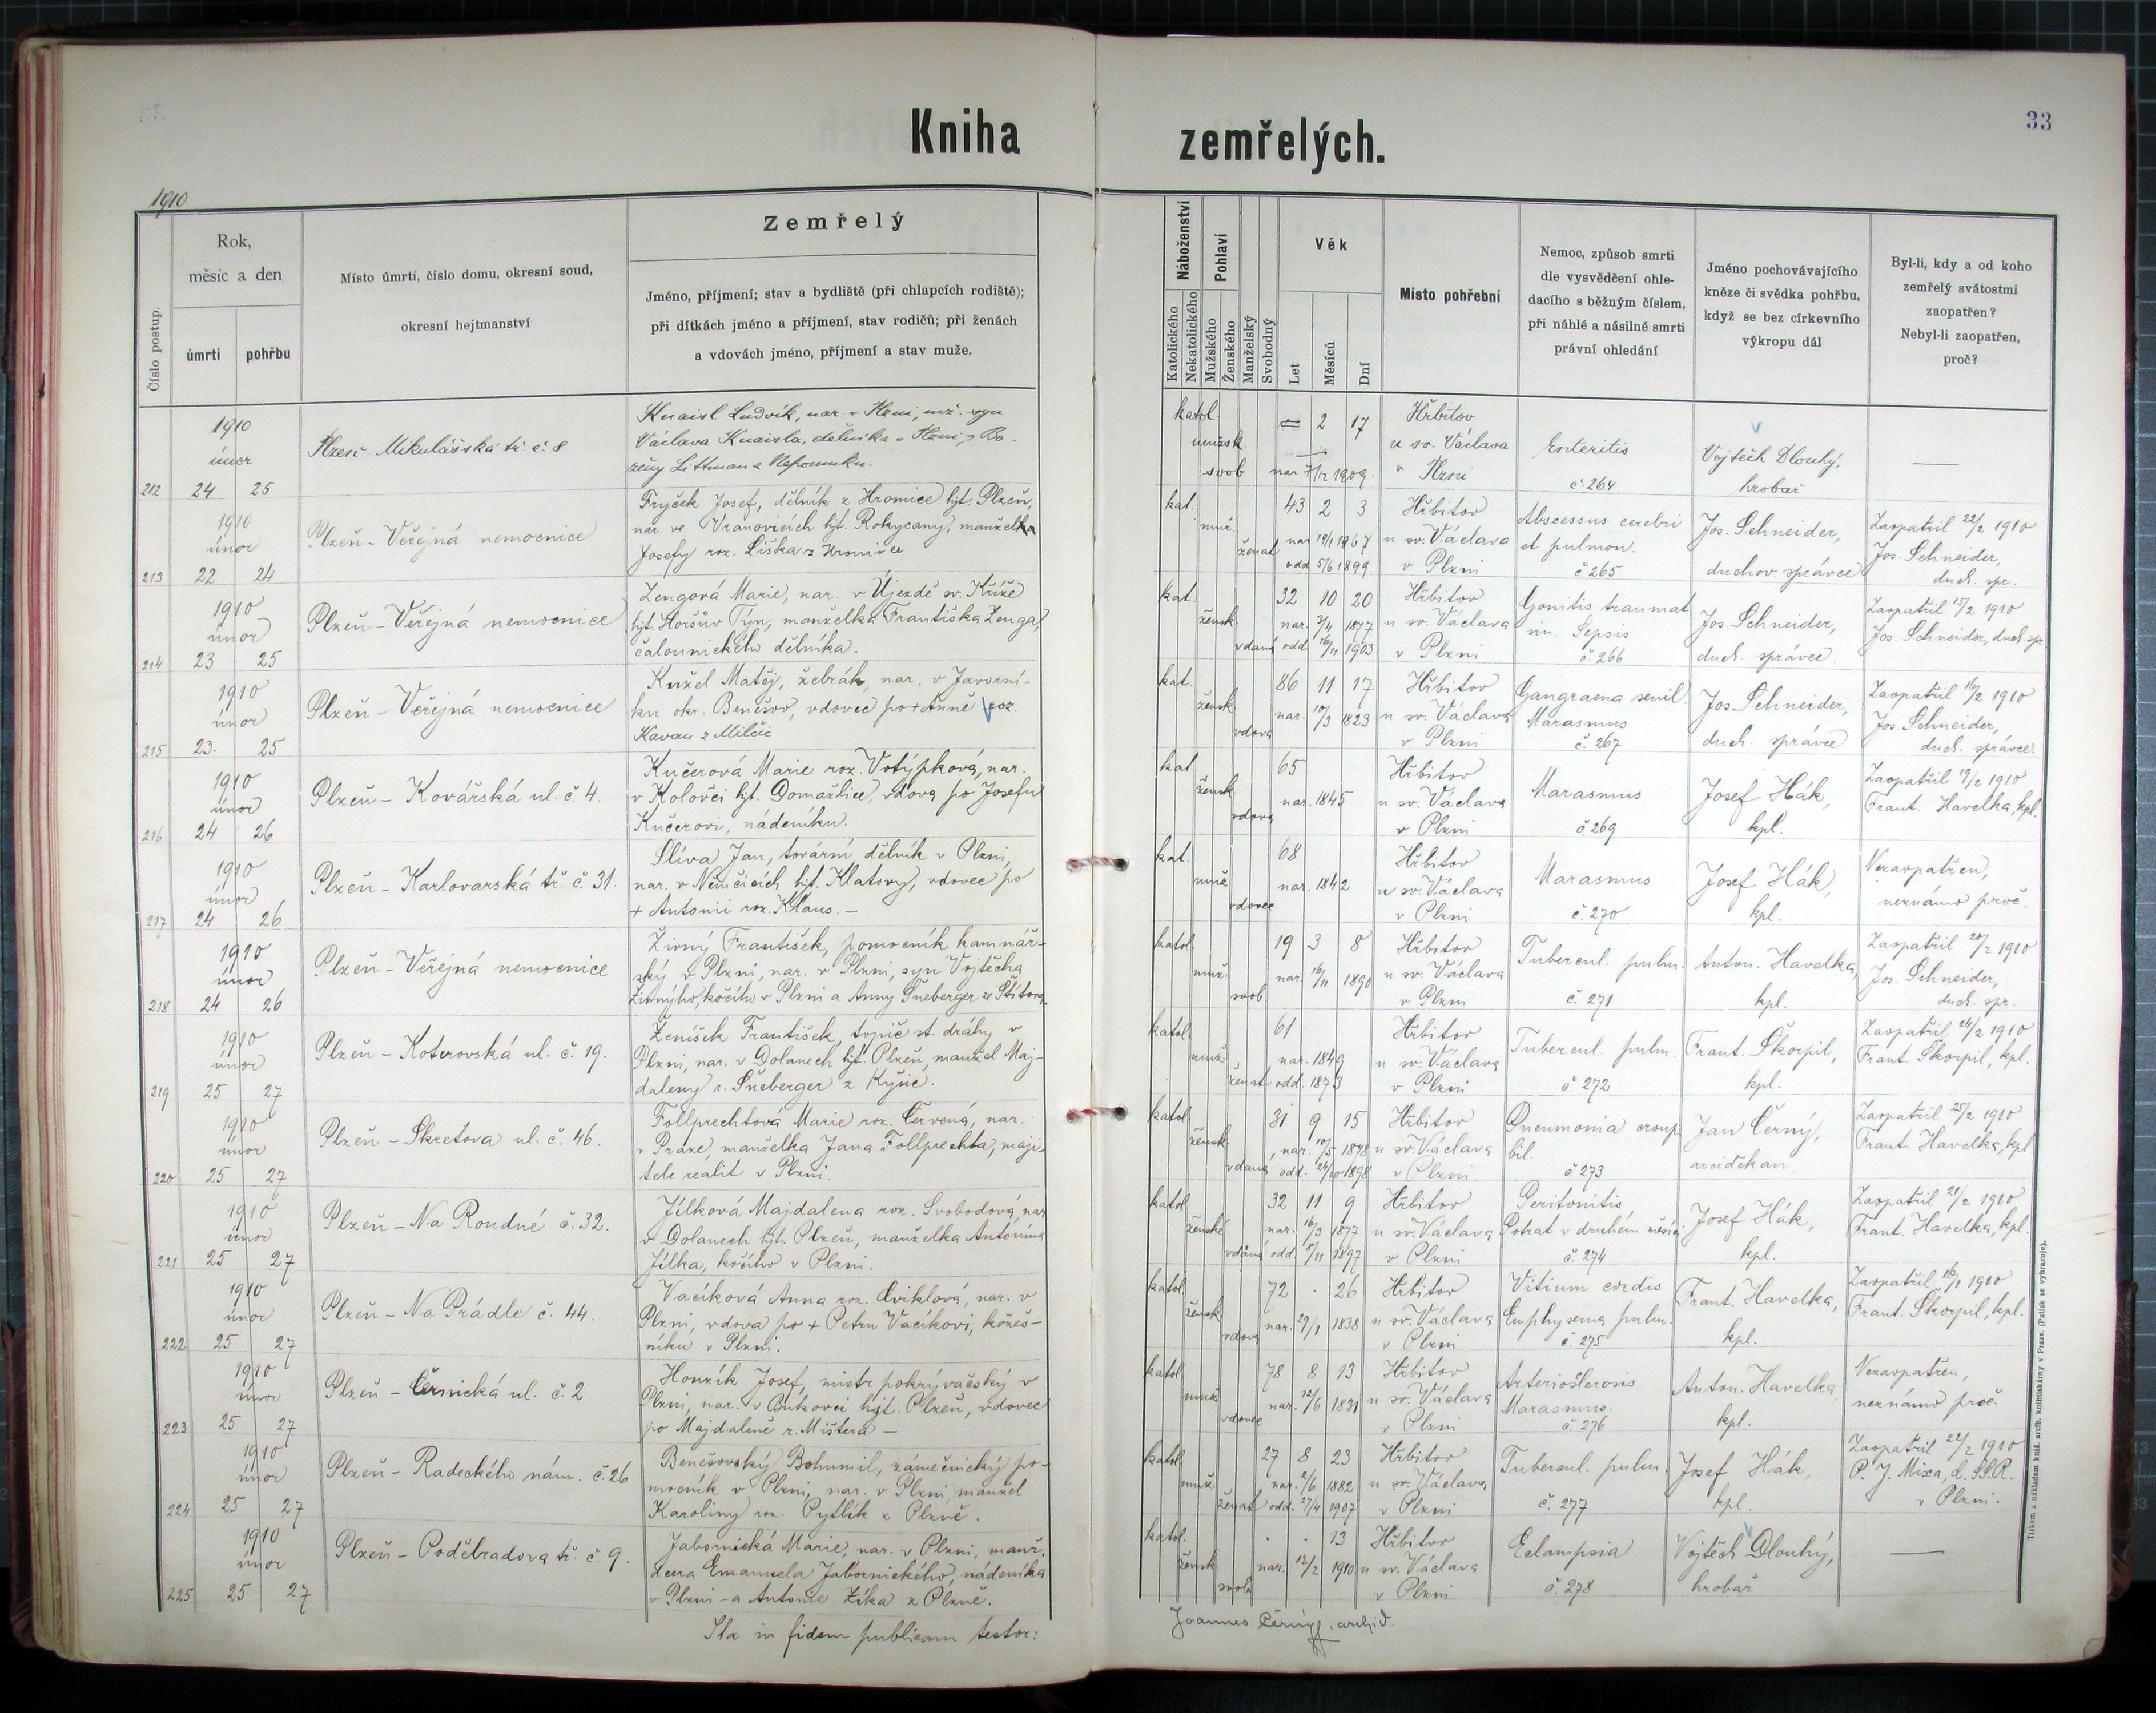 Kniha zemřelých.
33
1910
Číslo postup.
Rok,
měsíc a den
úmrtí
pohřbu
Místo úmrtí, číslo domu, okresní soud,
okresní hejtmanství
Zemřelý
Jméno, příjmení; stav a bydliště (při chlapcích rodiště);
při dítkách jméno a příjmení, stav rodičů; při ženách
a vdovách jméno, příjmení a stav muže.
Náboženství
Katolického
Nekatolického
Pohlaví
Mužského
Ženského
Manželský
Svobodný
Věk
Let
Měsíců
Dní
Místo pohřební
Nemoc, způsob smrti
dle vysvědčení ohle-
dacího s běžným číslem,
při náhlé a násilné smrti
právní ohledání
Jméno pochovávajícího
kněze či svědka pohřbu,
když se bez církevního
výkropu dál
Byl-li, kdy a od koho
zemřelý svátostmi
zaopatřen?
Nebyl-li zaopatřen,
proč?
212
1910
únor
24 25
Plzeň - Mikulášská tř. č. 8
Knaisl Ludvík, nar. v Plzni, syn
Václava Knaisla, dělníka v Plzni, a
ženy Littman z Nepomuku.
katol.
mužsk
svob
2 17
nar. 7/12 1909.
Hřbitov
u sv. Václava
v Plzni
Enteritis
č. 264
Vojtěch Dlouhý,
hrobař
—
213
1910
únor
22 24
Plzeň - Veřejná nemocnice
Fryček Josef, dělník z Hromice hjt. Plzeň,
nar. ve Vranovicích hjt. Rokycany, manžel
Josefy roz. Liška z Hromice
kat.
muž.
ženat
43 2 3
nar 19/1 1867
odd 5/6 1899
Hřbitov
u sv. Václava
v Plzni
Abscessus cerebri
et pulmon.
č. 265
Jos. Schneider,
duchov. správce
Zaopatřil 22/2 1910
Jos. Schneider,
duch. spr.
214
1910
únor
23 25
Plzeň - Veřejná nemocnice
Zengová Marie, nar. v Újezdě sv. Kříže
hjt. Horšův Týn, manželka Františka Zenga,
čalounického dělníka.
kat.
žensk
vdaná
32 10 20
nar. 3/4 1877
odd. 16/11 1903
Hřbitov
u sv. Václava
v Plzni
Gonitis traumat
sin. Sepsis
č. 266
Jos. Schneider,
duch. správce.
Zaopatřil 15/2 1910
Jos. Schneider, duch. spr
215
1910
únor
23. 25
Plzeň - Veřejná nemocnice
Kužel Matěj, žebrák, nar. v Javorní-
ku okr. Benešov, vdovec po + Anně roz.
Kavan z Milčic
kat.
žensk
vdova
86 11 17
nar. 10/3 1823
Hřbitov
u sv. Václava
v Plzni
Gangraena senil.
Marasmus
č. 267
Jos. Schneider,
duch. správce
Zaopatřil 16/2 1910
Jos. Schneider,
duch. správce.
216
1910
únor
24 26
Plzeň - Kovářská ul. č. 4.
Kučerová Marie roz. Votýpková, nar.
v Kolovči hjt. Domažlice, vdova po Josefu
Kučerovi, nádeníku.
kat
žensk
vdova
65
nar. 1845
Hřbitov
u sv. Václava
v Plzni
Marasmus
č. 269
Josef Hák,
kpl.
Zaopatřil 19/2 1910
Frant. Havelka, kpl.
217
1910
únor
24 26
Plzeň - Karlovarská tř. č. 31.
Slíva Jan, tovární dělník v Plzni,
nar. v Němčicích hjt. Klatovy, vdovec po
+ Antonii roz. Klaus. -
kat.
muž
vdovec
68
nar. 1842
Hřbitov
u sv. Václava
v Plzni
Marasmus
č. 270
Josef Hák,
kpl.
Nezaopatřen,
neznámo proč.
218
1910
únor
24 26
Plzeň - Veřejná nemocnice
Živný František, pomocník kamnář-
ský v Plzni, nar. v Plzni, syn Vojtěcha
Živnýho, kočího v Plzni a Anny Šneberger ze Štítova.
katol.
muž.
svob
19 3 8
nar. 16/11 1890
Hřbitov
u sv. Václava
v Plzni
Tubercul. pulm.
č. 271
Anton. Havelka,
kpl.
Zaopatřil 20/2 1910
Jos. Schneider,
duch. spr.
219
1910
únor
25 27
Plzeň - Koterovská ul. č. 19.
Ženíšek František, topič st. dráhy v
Plzni, nar. v Dolanech hjt. Plzeň, manžel Maj-
daleny r. Šneberger z Kyšic.
katol.
muž.
ženat
61
nar. 1849
odd. 1873
Hřbitov
u sv. Václava
v Plzni
Tubercul. pulm.
č. 272
Frant. Škorpil,
kpl.
Zaopatřil 24/2 1910
Frant. Škorpil, kpl.
220
1910
únor
25 27
Plzeň - Skretova ul. č. 46.
Follprechtová Marie roz. Červená, nar.
v Praze, manželka Jana Follprechta, maji-
tele realit v Plzni.
katol.
žensk.
vdaná
31 9 15
nar. 10/5 1878
odd. 24/10 1898
Hřbitov
u sv. Václava
v Plzni
Pneumonia croup
bil.
č. 273
Jan Černý,
arciděkan.
Zaopatřil 25/2 1910
Frant. Havelka, kpl.
221
1910
únor
25 27
Plzeň - Na Roudné č. 32.
Jílková Majdalena roz. Svobodová, nar.
v Dolanech hjt. Plzeň, manželka Antonína
Jílka, kočího v Plzni.
katol.
ženské
vdaná
32 11 9
nar. 16/3 1877
odd. /11 1897
Hřbitov
u sv. Václava
v Plzni
Peritonitis
Potrat v druhém měsíci.
č. 274
Josef Hák,
kpl.
Zaopatřil 21/2 1910
Frant. Havelka, kpl.
222
1910
únor
25 27
Plzeň - Na Prádle č. 44.
Vacíková Anna roz. Cviklová, nar. v
Plzni, vdova po + Petru Vacíkovi, kožeš-
níku v Plzni.
katol.
žensk.
vdova
72 . 26
nar. 29/1 1838
Hřbitov
u sv. Václava
v Plzni
Vitium cordis
Emphysema pulm.
č. 275
Frant. Havelka,
kpl.
Zaopatřil 16/1 1910
Frant. Škorpil, kpl.
223
1910
únor
25 27
Plzeň - Černická ul. č. 2
Honzík Josef, mistr pokrývačský v
Plzni, nar. v Bukovci hjt. Plzeň, vdovec
po Majdaleně r. Mištera -
katol.
muž
vdovec
78 8 13
nar. 12/6 1831
Hřbitov
u sv. Václava
v Plzni
Arteriosclerosis
Marasmus.
č. 276
Anton. Havelka,
kpl.
Nezaopatřen,
neznámo proč.
224
1910
únor
25 27
Plzeň - Radeckého nám. č. 26
Benešovský Bohumil, zámečnický po-
mocník v Plzni, nar. v Plzni, manžel
Karoliny roz. Pytlík z Plzně.
katol.
muž.
ženat
27 8 23
nar. 2/6 1882
odd. 27/4 1907
Hřbitov
u sv. Václava
v Plzni
Tubercul. pulm.
č. 277
Josef Hák,
kpl.
Zaopatřil 22/2 1910
P. J. Mixa, C. SS. R.
v Plzni.
225
1910
únor
25 27
Plzeň - Poděbradova tř. č. 9.
Jabornická Marie, nar. v Plzni, manž.
dcera Emanuela Jabornického, nádeníka
v Plzni - a Antonie Zíka z Plzně.
katol.
žensk
svob.
. . 13
nar. 12/2 1910
Hřbitov
u sv. Václava
v Plzni
Eclampsia
č. 278
Vojtěch Dlouhý,
hrobař
—
Ita in fidem publicam testor:
Joannes Černý, archid.
Tiskem a nákladem kníž. arcib. knihtiskárny v Praze. (Patisk se vyhrazuje).